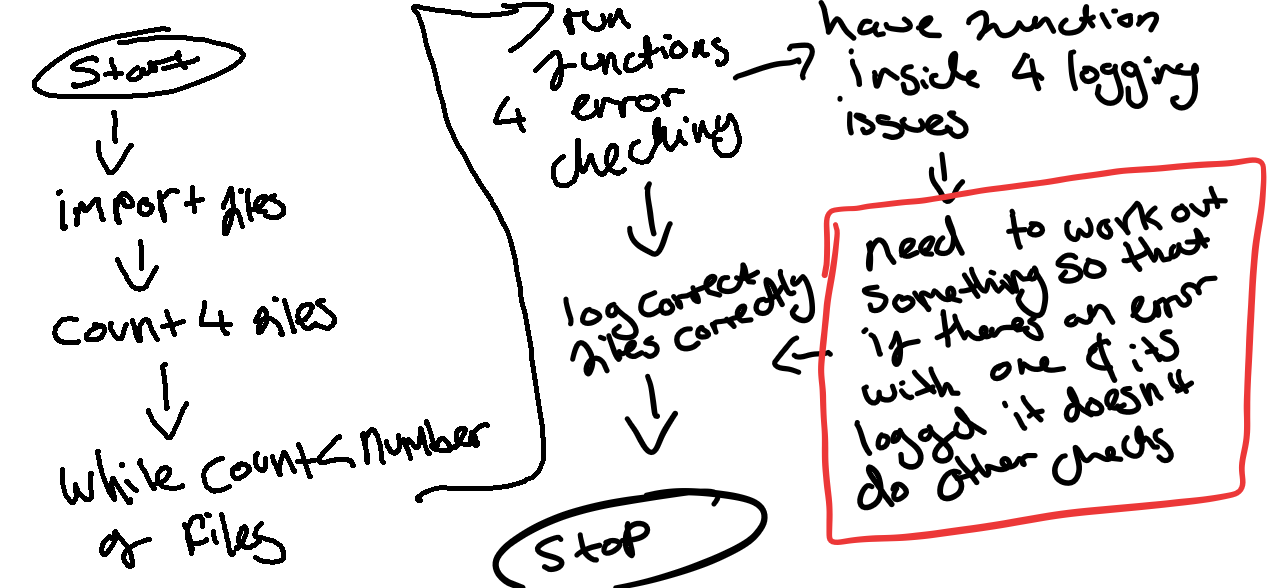 Start
import files
count 4 files
while count < number
of files
run
functions
4 error
checking
have function
inside 4 logging
issues
need to work out
something so that
if theres an error
with one & its
logged it doesn't
do other checks
log correct
files correctly
Stop